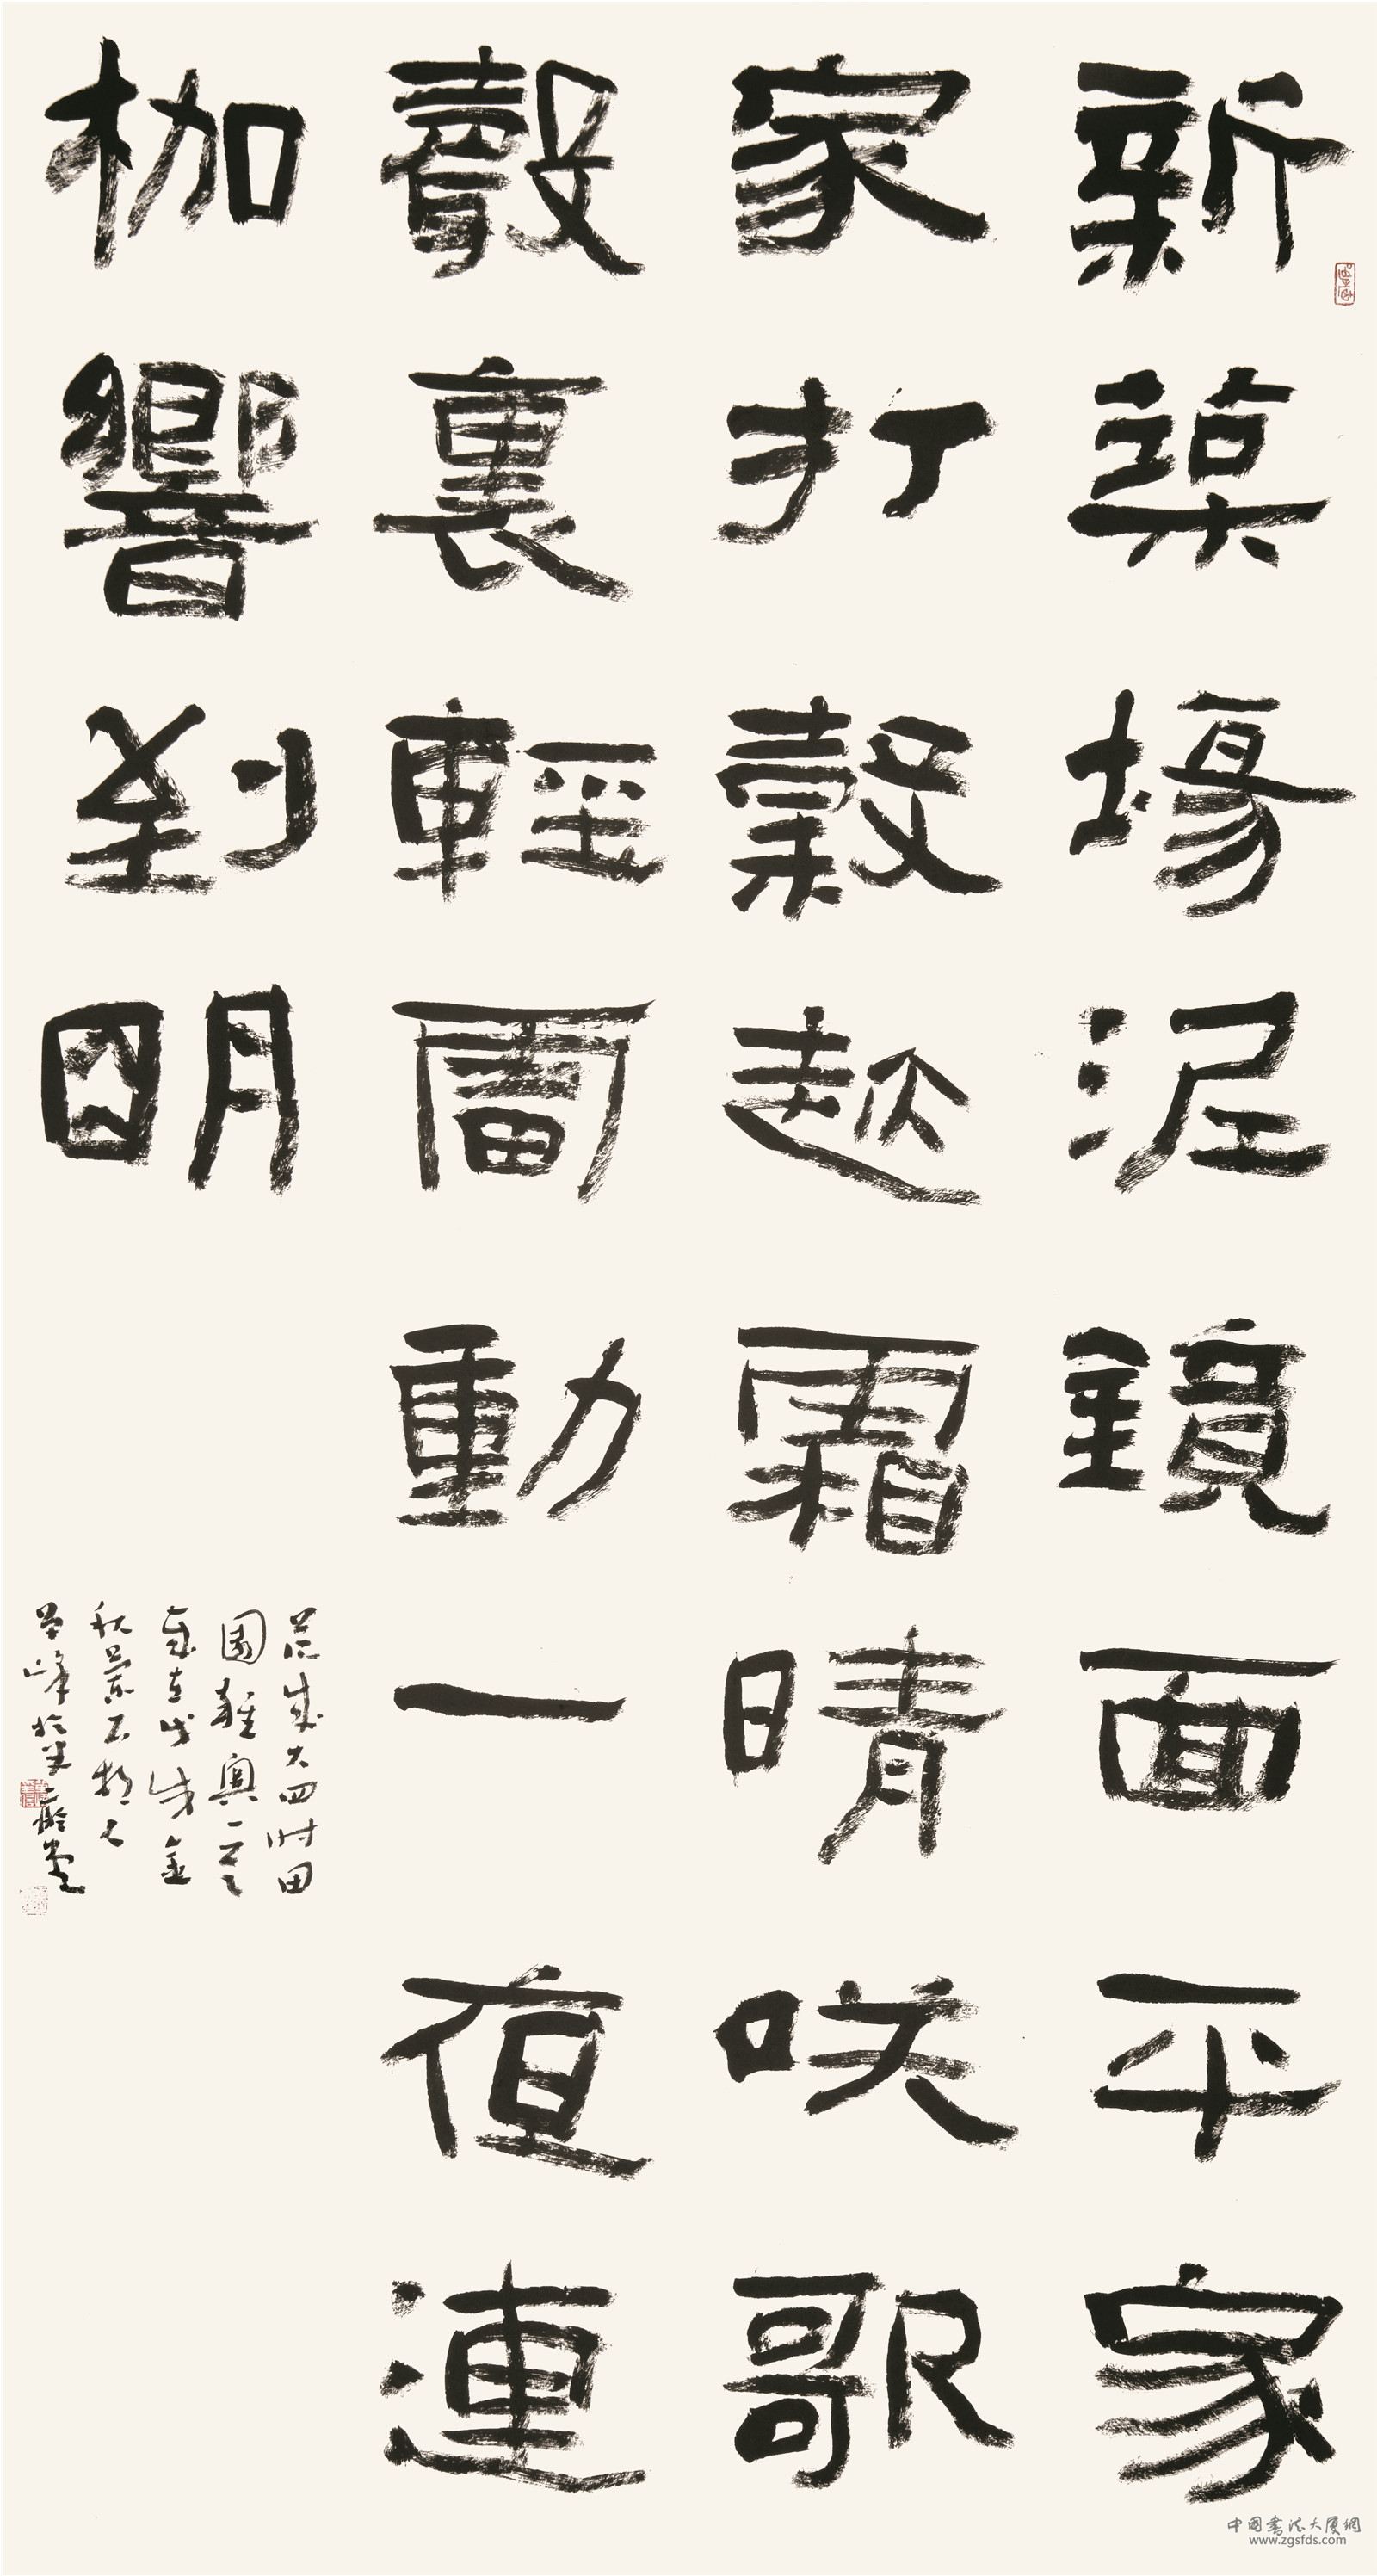 新築場泥鏡面平家
家打穀趂霜晴咲歌
聲裏輕雷動一夜連
枷響到明
范成大四时田
園雜興一首
歲在戊戌金
秋
峰於堂
中国書法大廈網
www.zgsfds.com